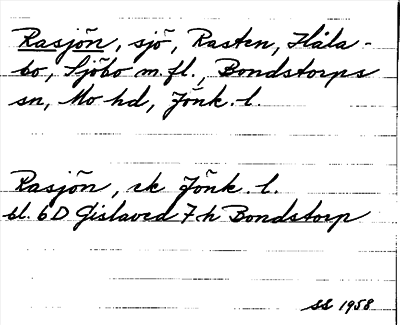 Rasjön, sjö, Rasten, Håla-
bo, Sjöbo m.fl., Bondstorps
sn, Mo hd, Jönk. l.
Rasjön, ek Jönk. l.
bl. 6D Gislaved 7h Bondstorp
SS 1958